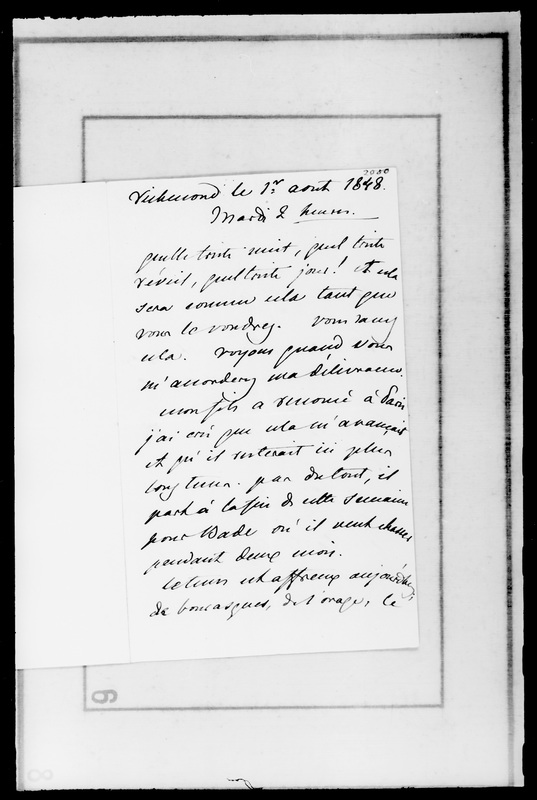 2080
Richmond le 1er aout 1848.
Mardi 2 heures.
quelle triste nuit, quel triste
réveil, quel triste jour! et cela
sera comme cela tant que
vous le voudrez. vous savez
cela. voyons quand vous
m'accorderez ma délivrance.
mon fils a renoncé à Paris
j'ai crû que cela m'avançait
et qu'il resterait ici plus
longtems. pas du tout, il
part à la fin de cette semaine
pour Bade où il veut chasser
pendant deux mois.
le tems est affreux aujourd'hui,
des bourasques, de l'orage, le
6